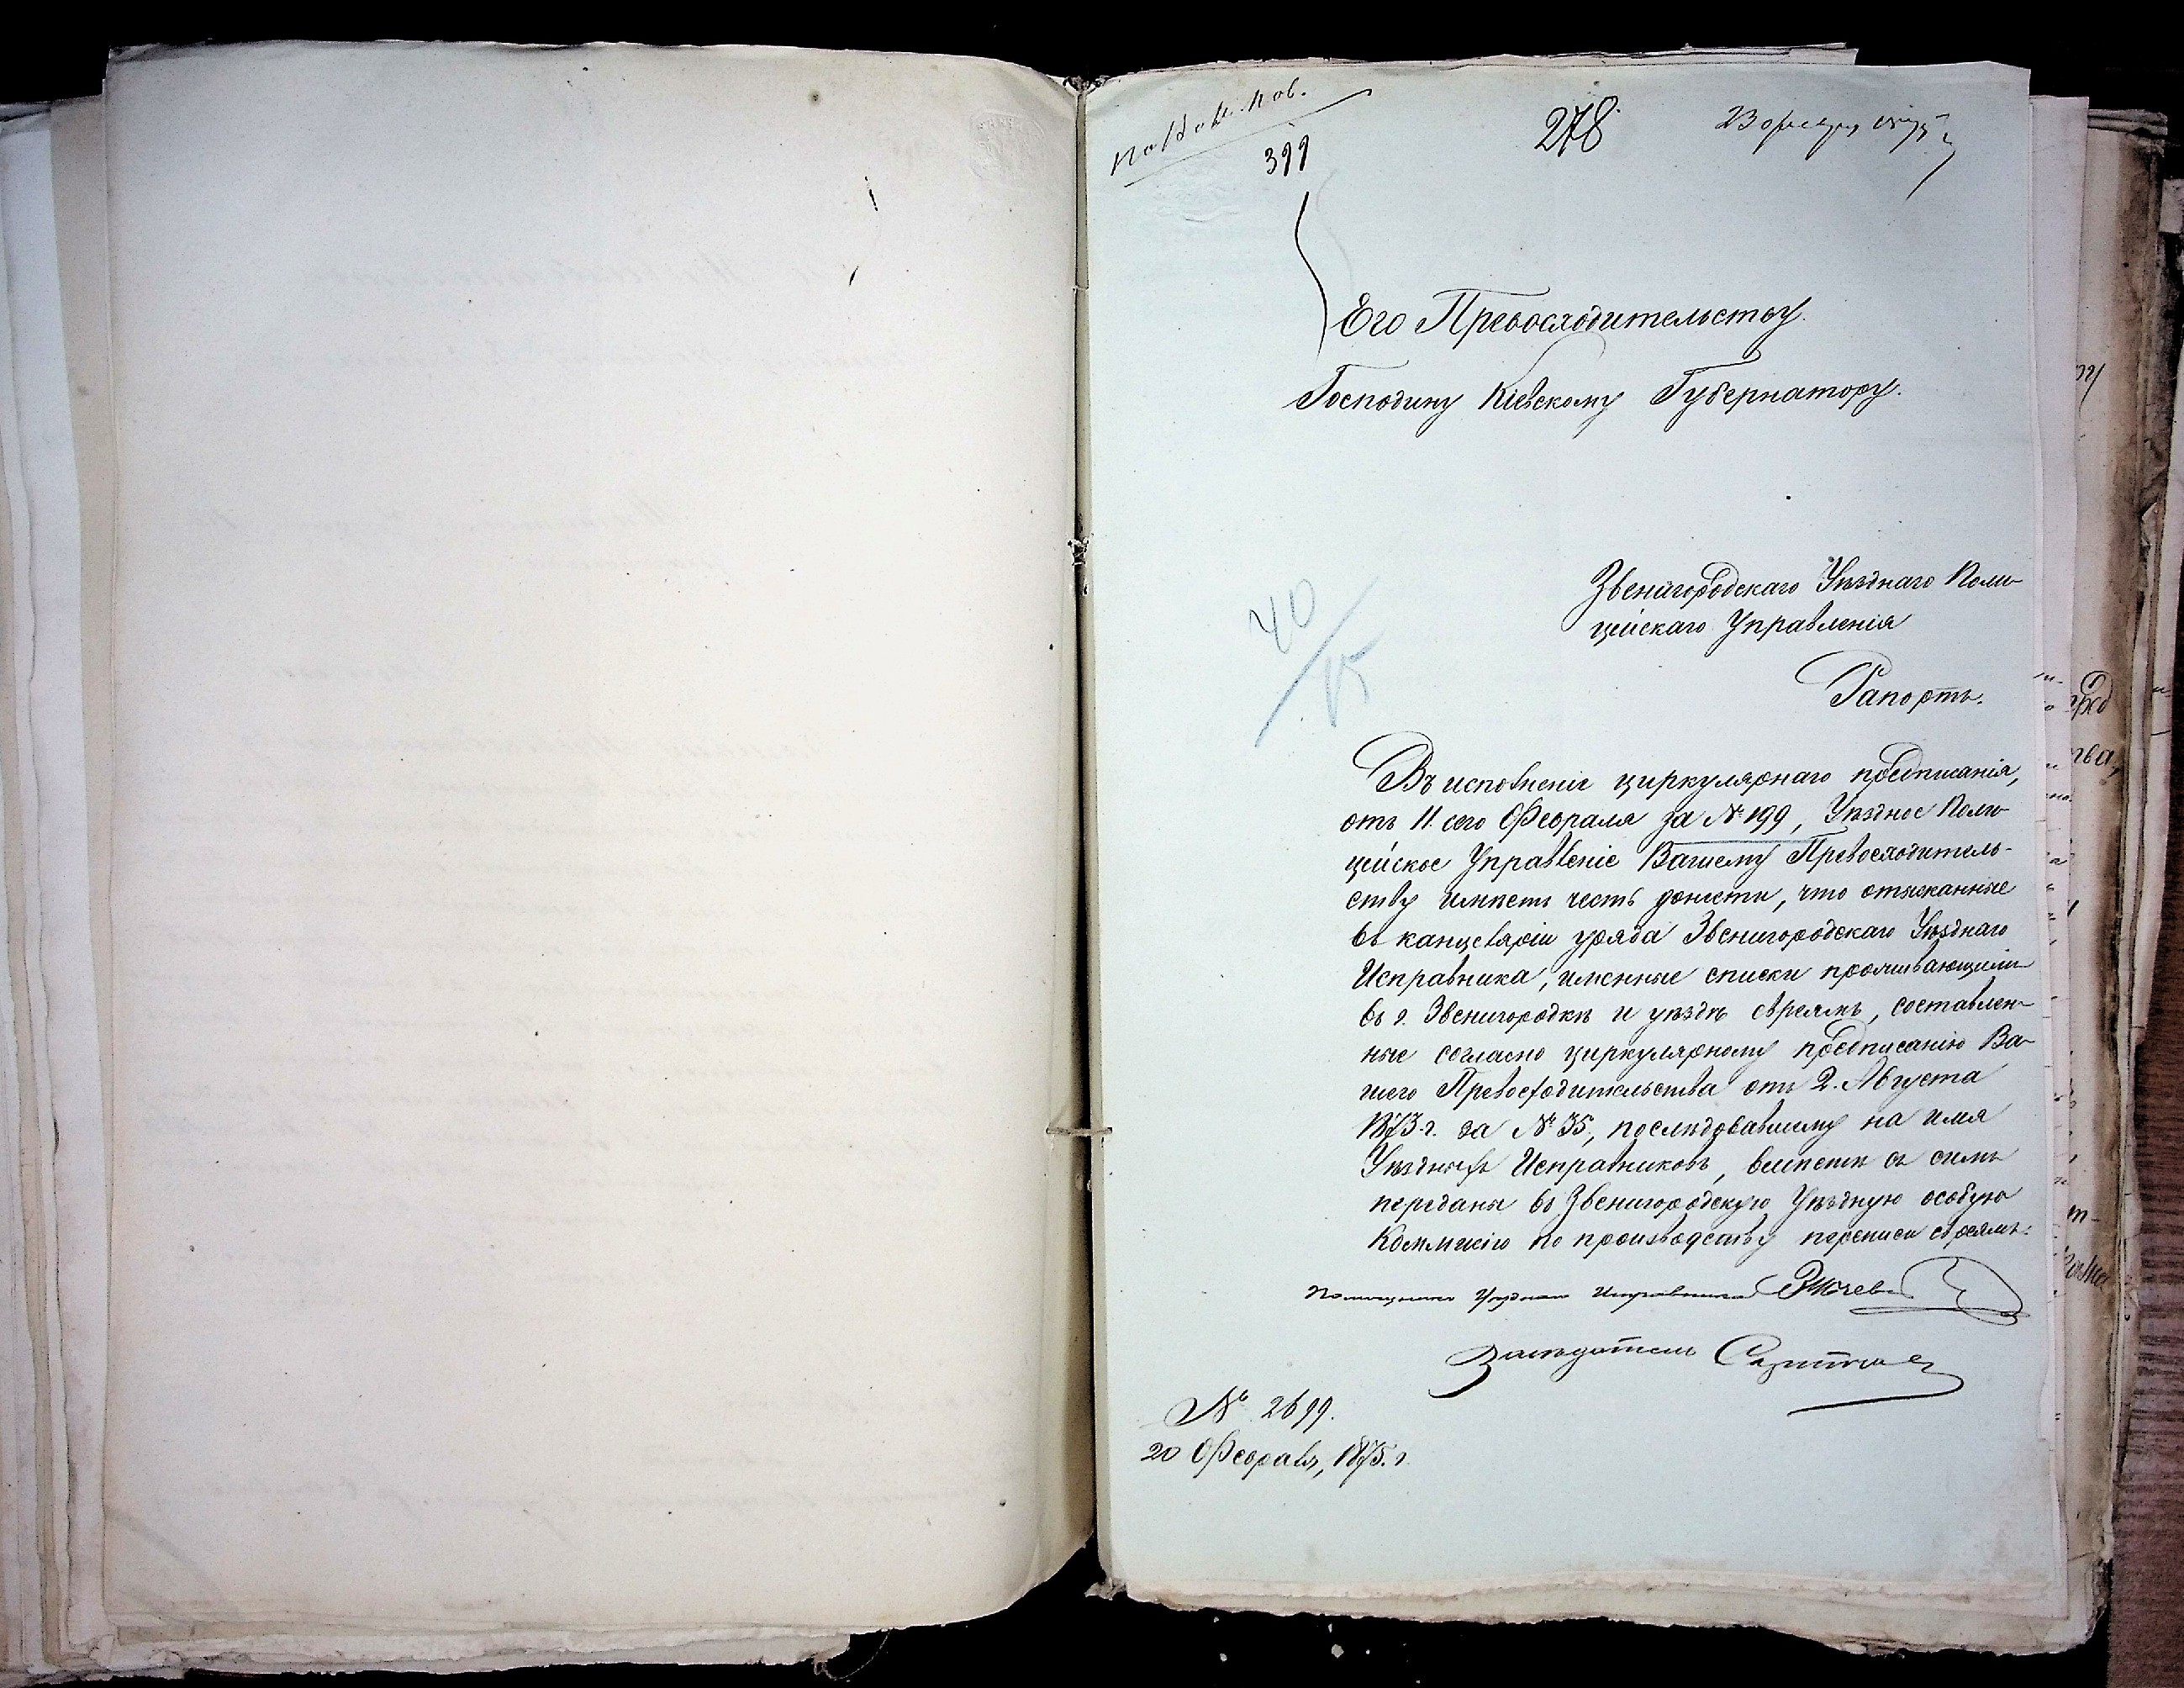 399
278
23
Его Превосходительству
Господину Кіевскому Губернатору.
40/15
Звенигородскаго Уѣзднаго Поли-
цейскаго Управленія
Рапортъ.
Въ исполненіе циркулярнаго предписанія,
отъ 11 сего Февраля за № 199, Уѣздное Поли-
цейское Управленіе Вашему Превосходитель-
ству имѣетъ честь донести, что отысканные
въ канцеляріи Звенигородскаго Уѣзднаго
Исправника, именные списки проживающимъ
въ г. Звенигородкѣ и уѣздѣ евреямъ, составлен-
ные согласно циркулярному предписанію Ва-
шего Превосходительства отъ 2. Августа
1873 г. за № 35, послѣдовавшему на имя
Уѣздныхъ Исправниковъ, вмѣстѣ съ симъ
переданы въ Звенигородскую Уѣздную особую
Коммисію по производству переписи евреямъ.
Помощникъ Уѣзднаго Исправника
Засѣдатель
№ 2699.
20 Февраля, 1875. г.